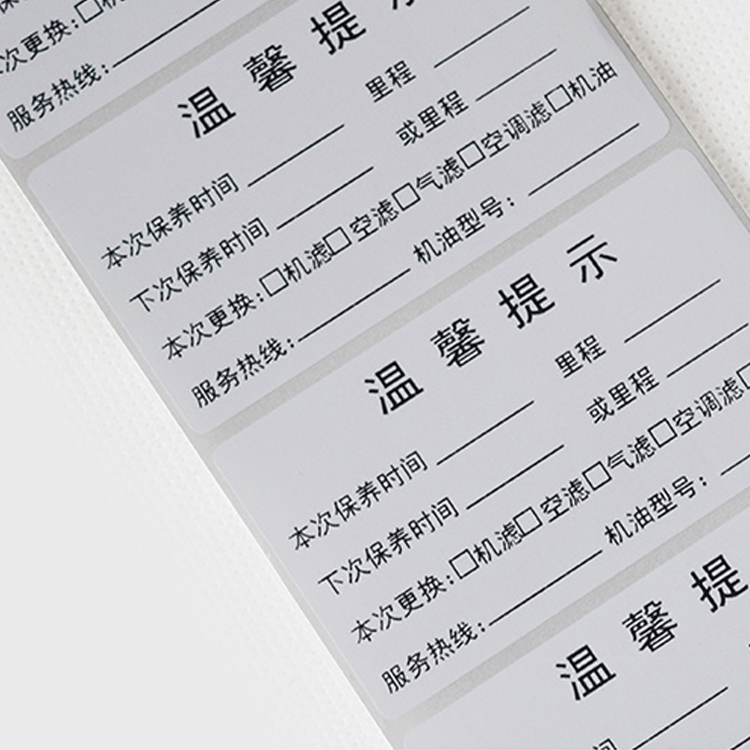 本次更换:□机
服务热线:
温馨提示
本次保养时间 里程
下次保养时间 或里程
本次更换:□机滤□空滤□气滤□空调滤□机油
服务热线: 机油型号:
温馨提示
本次保养时间 里程
下次保养时间 或里程
本次更换:□机滤□空滤□气滤□空调滤□
服务热线: 机油型号:
温馨提
间